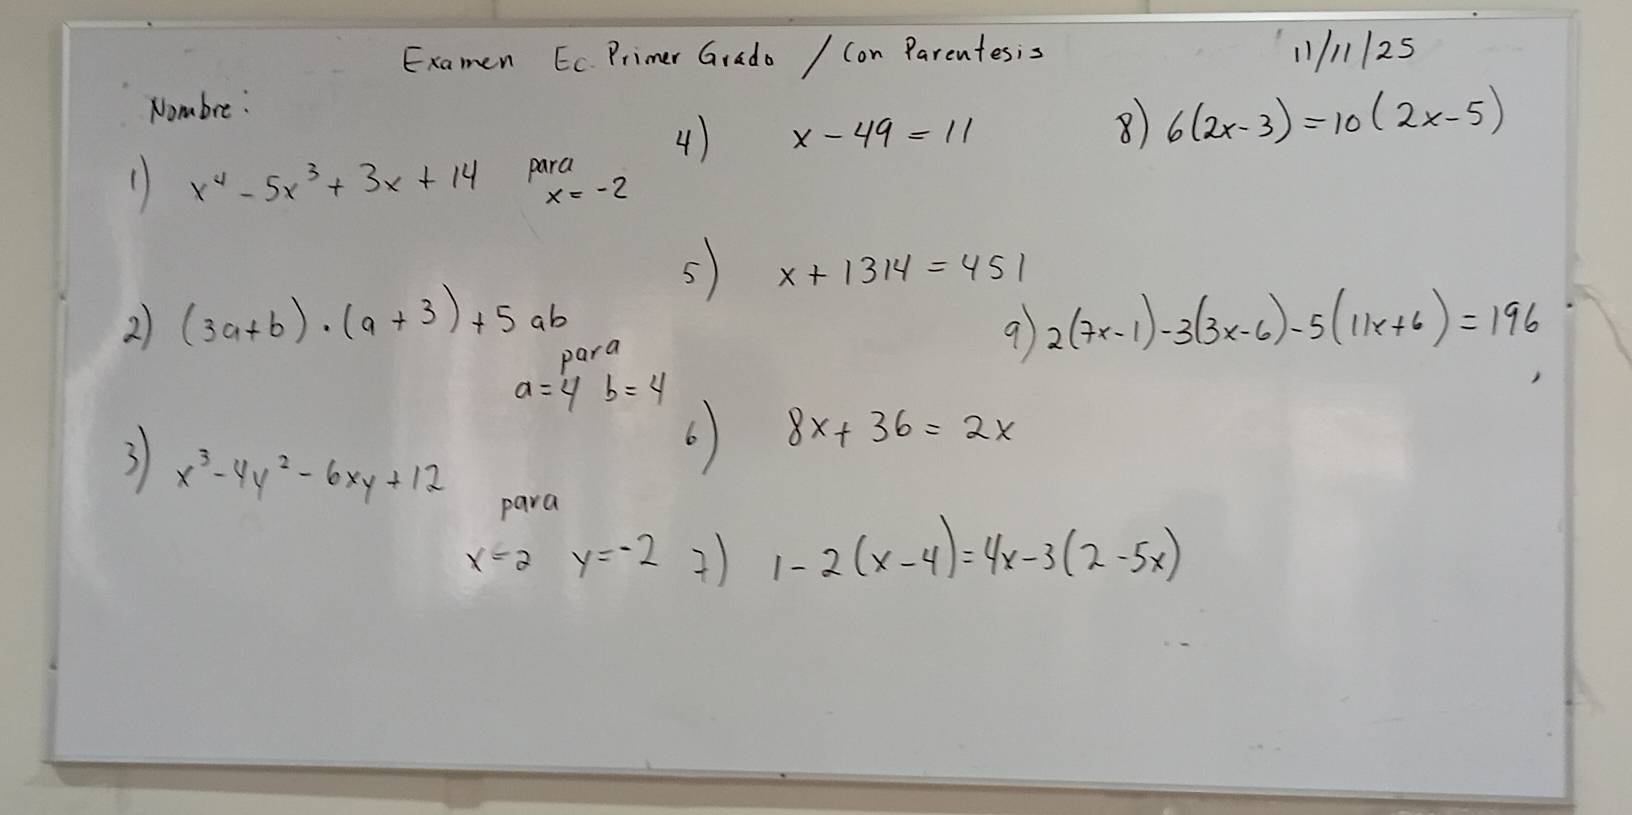 Examen Ec. Primer Grado / Con Parentesis 11/11/25
Nombre:
1) x⁴ - 5x³ + 3x + 14 para x = -2
2) (3a+b) · (a + 3) + 5 ab
para
a = 4 b = 4
3) x³ - 4y² - 6xy + 12
para
x = 2 y = -2
4) x - 49 = 11
5) x + 1314 = 451
6) 8x + 36 = 2x
7) 1 - 2(x - 4) = 4x - 3(2 - 5x)
8) 6(2x - 3) = 10(2x - 5)
9) 2(7x - 1) - 3(3x - 6) - 5(11x + 6) = 196